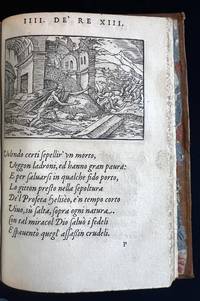 IIII. DE' RE XIII.
Volendo certi sepellir' vn morto,
Veggon ladroni, ed hanno gran paura:
E per saluarsi in qualche fido porto,
Lo gitton presto nella sepoltura
De'l Profeta Heliseo, e'n tempo corto
Viuo, sù salta, sopra ogni natura.
Con tal miracol Dio saluò i fedeli
E spauentò quegl' assassin crudeli.
P